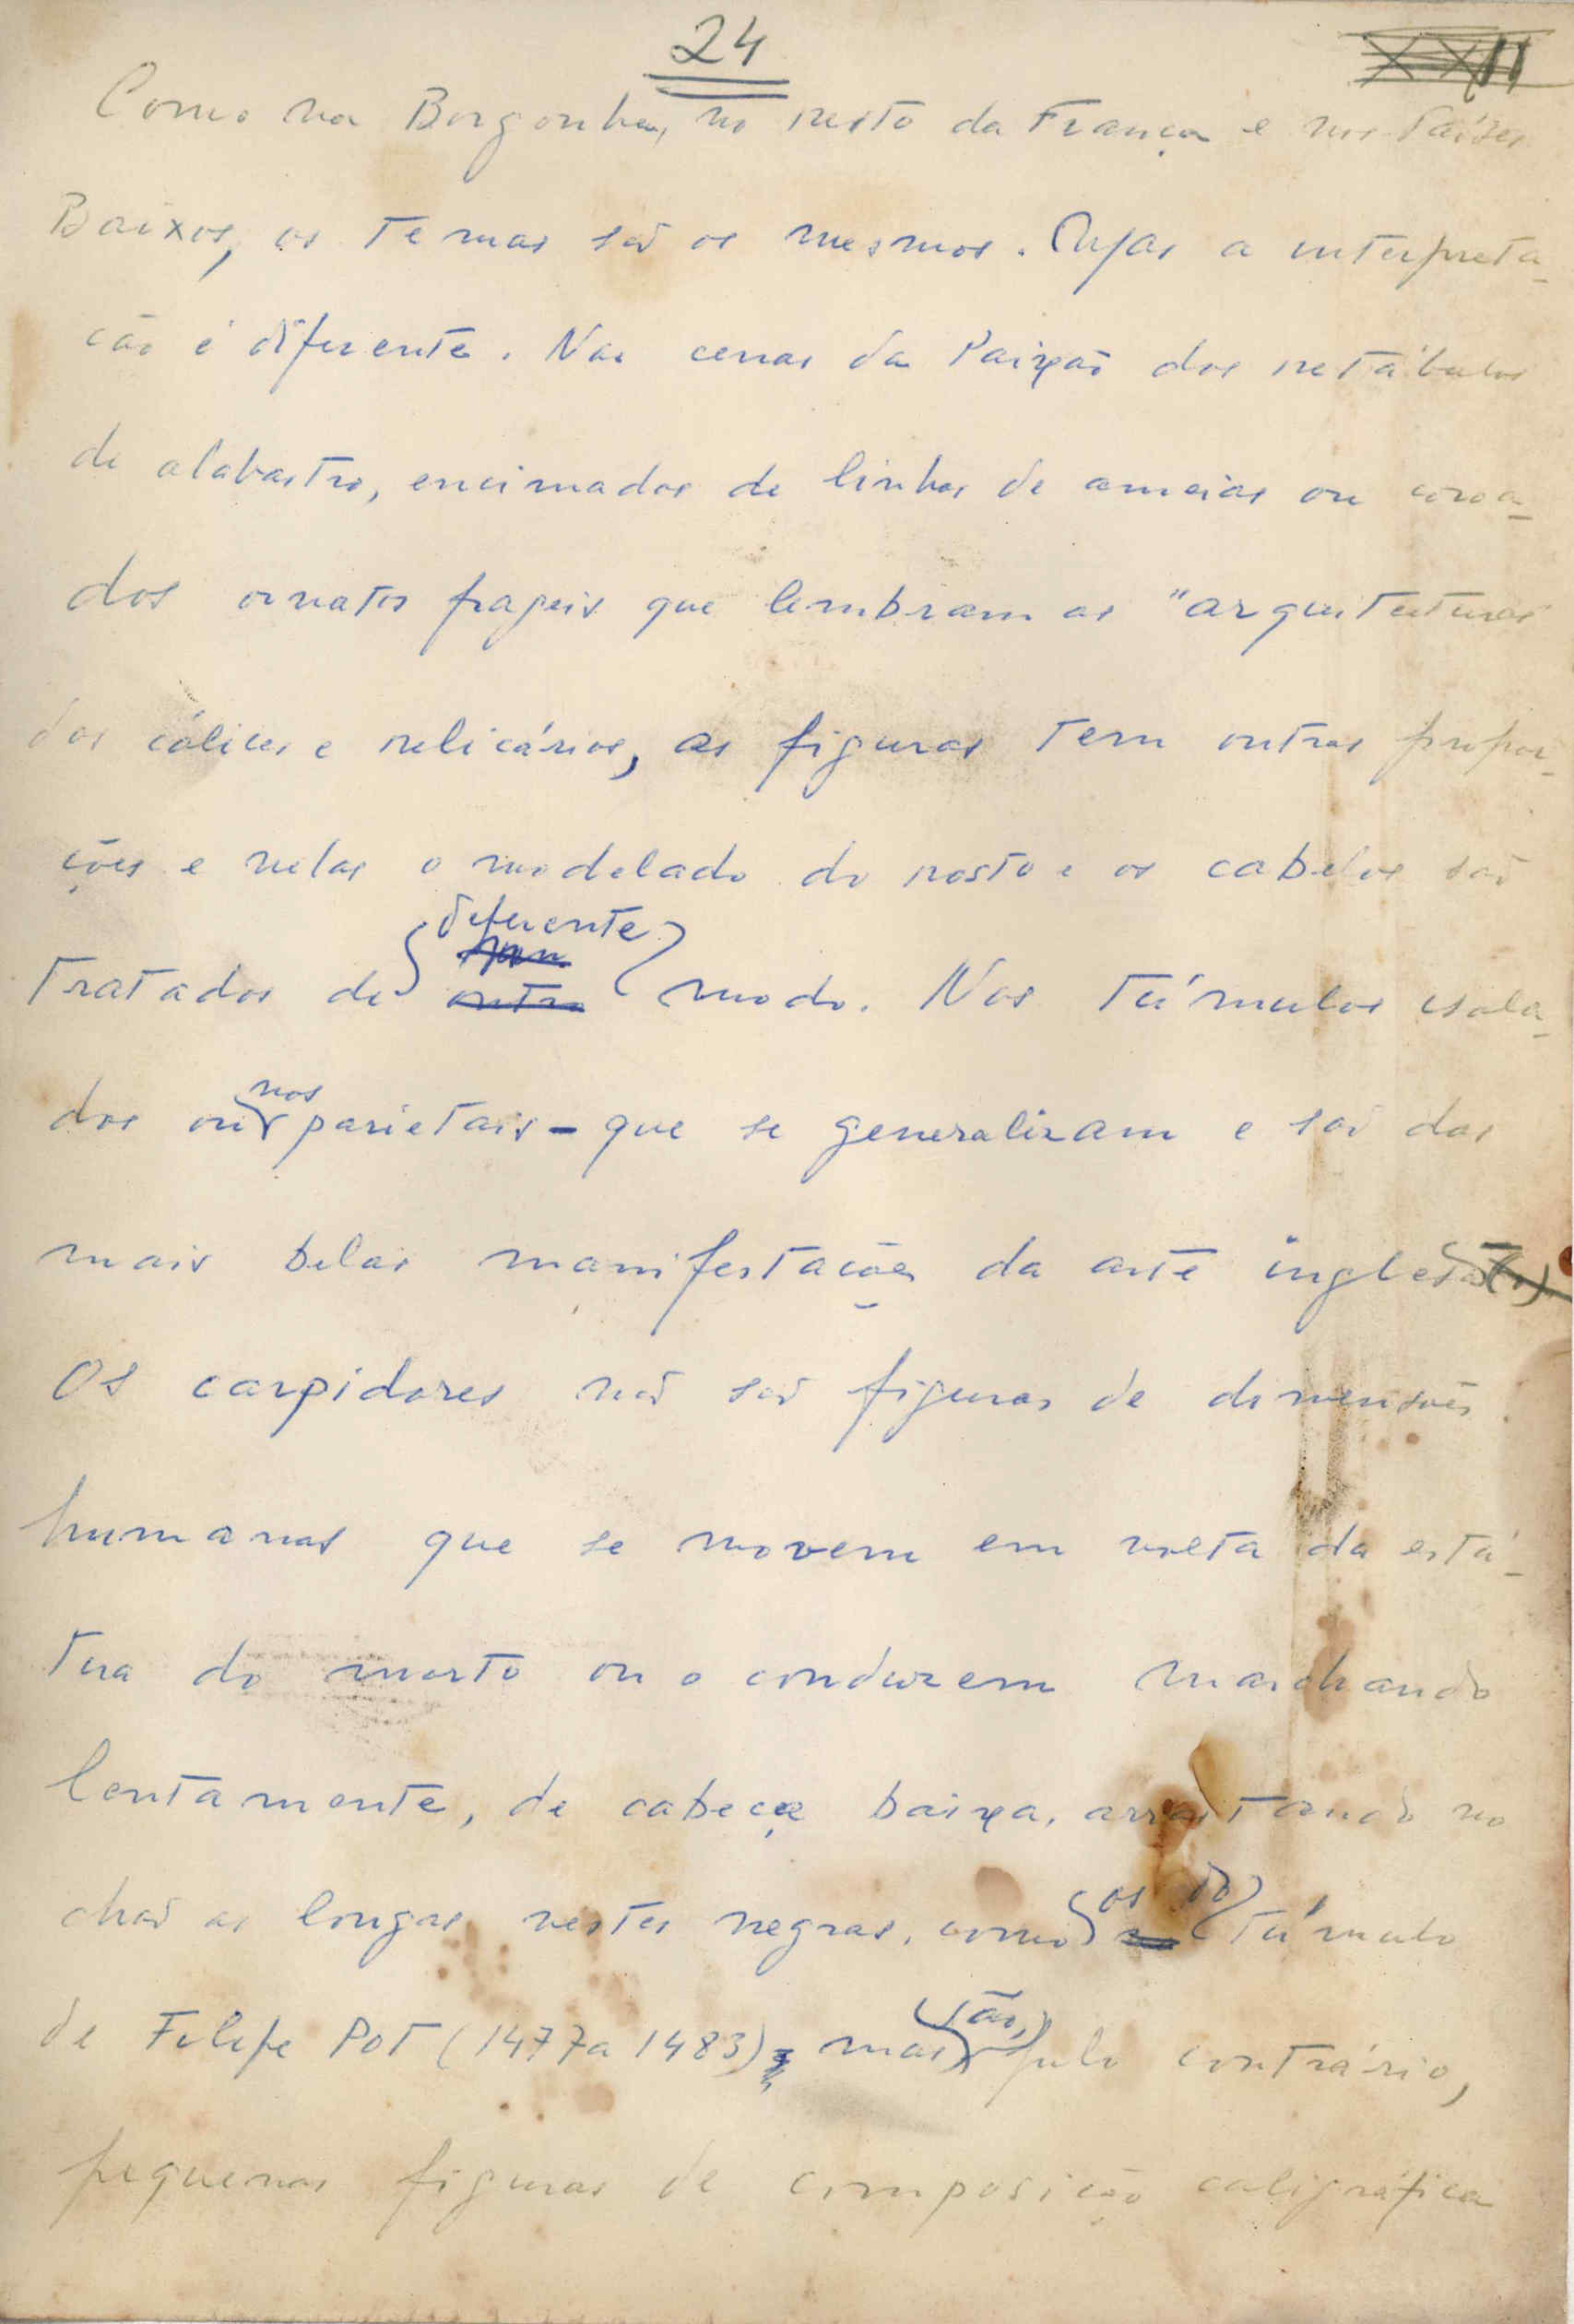 24
XXII
Como na Borgonha, no resto da França e nos Países
Baixos, os temas são os mesmos. Mas a interpreta-
ção é diferente. Nas cenas da Paixão dos retábulos
de alabastro, encimados de linhas de ameias ou coroa-
dos ornatos frageis que lembram as "arquitecturas"
dos cálices e relicários, as figuras tem outras propor-
ções e nelas o modelado do rosto e os cabelos são
diferente
tratados de outro modo. Nos túmulos isola-
nos
dos ou parietais - que se generalizam e são das
mais belas manifestações da arte inglesa -
Os carpidores não são figuras de dimensões
humanas que se movem em volta da está-
tua do morto ou o conduzem marchando
lentamente, de cabeça baixa, arrastando no
os do
chão as longas vestes negras, como túmulo
são,
de Filipe Pot (1477 a 1483), mas pelo contrário,
pequenas figuras de composição caligráfica